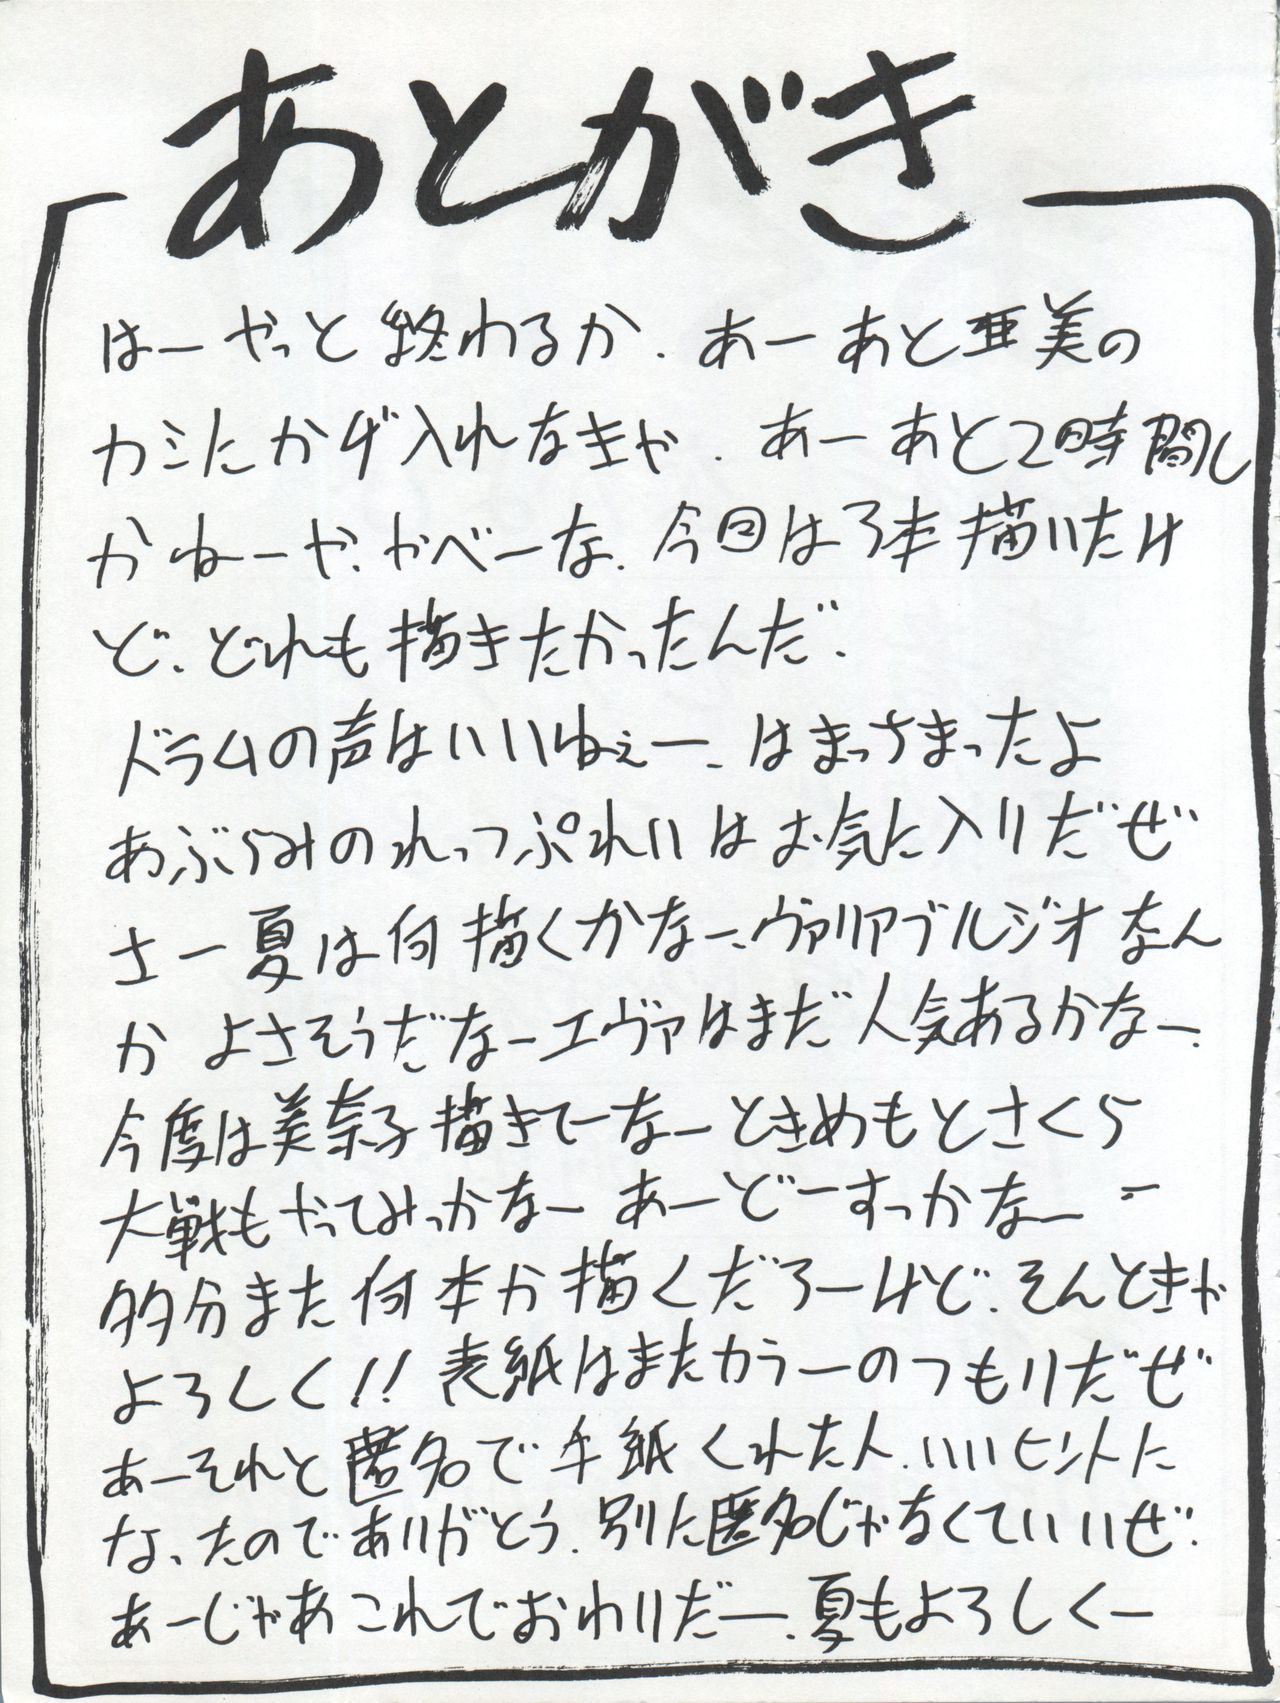 あとがき
はーやっと終わるか．あーあと亜美の
カミにかげ入れなきゃ．あーあと2時間し
かねーや．やべーな．今回は3本描いたけ
ど．どれも描きたかったんだ．
ドラムの声はいいねぇー．はまっさまったよ
あぶらみのれっつぷれいはお気に入りだぜ
さー夏は何描くかなー．ヴァリアブルジオなん
か よさそうだなーエヴァはまだ人気あるかなー．
今度は美奈子描きてーなーときめもとさくら
大戦もやってみっかなー あーどーすっかなー
多分また何本か描くだろーけど．そんときゃ
よろしく!! 表紙はまたカラーのつもりだぜ
あーそれと匿名で手紙くれた人．いいヒントに
なったのでありがとう．別に匿名じゃなくていいぜ．
あーじゃあこれでおわりだー．夏もよろしくー